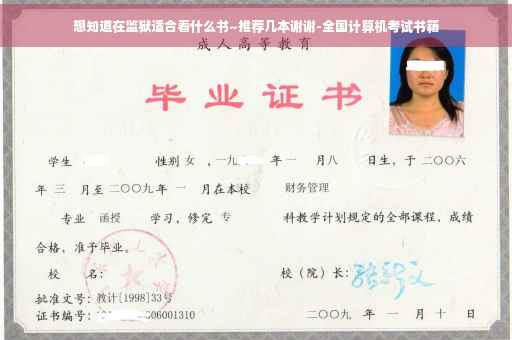 想知道在监狱适合看什么书~推荐几本谢谢-全国计算机考试书籍
成人高等教育
毕业证书
学生 性别 女 ，一九 年 一 月 八 日生，于二〇〇六
年 三 月至二〇〇九年 一 月在本校 财务管理
专业 函授 学习，修完 专 科教学计划规定的全部课程，成绩
合格，准予毕业。
校 名： 校（院）长：
批准文号：教计[1998]33号
证书编号： 06001310 二〇〇九 年 一 月 十 日